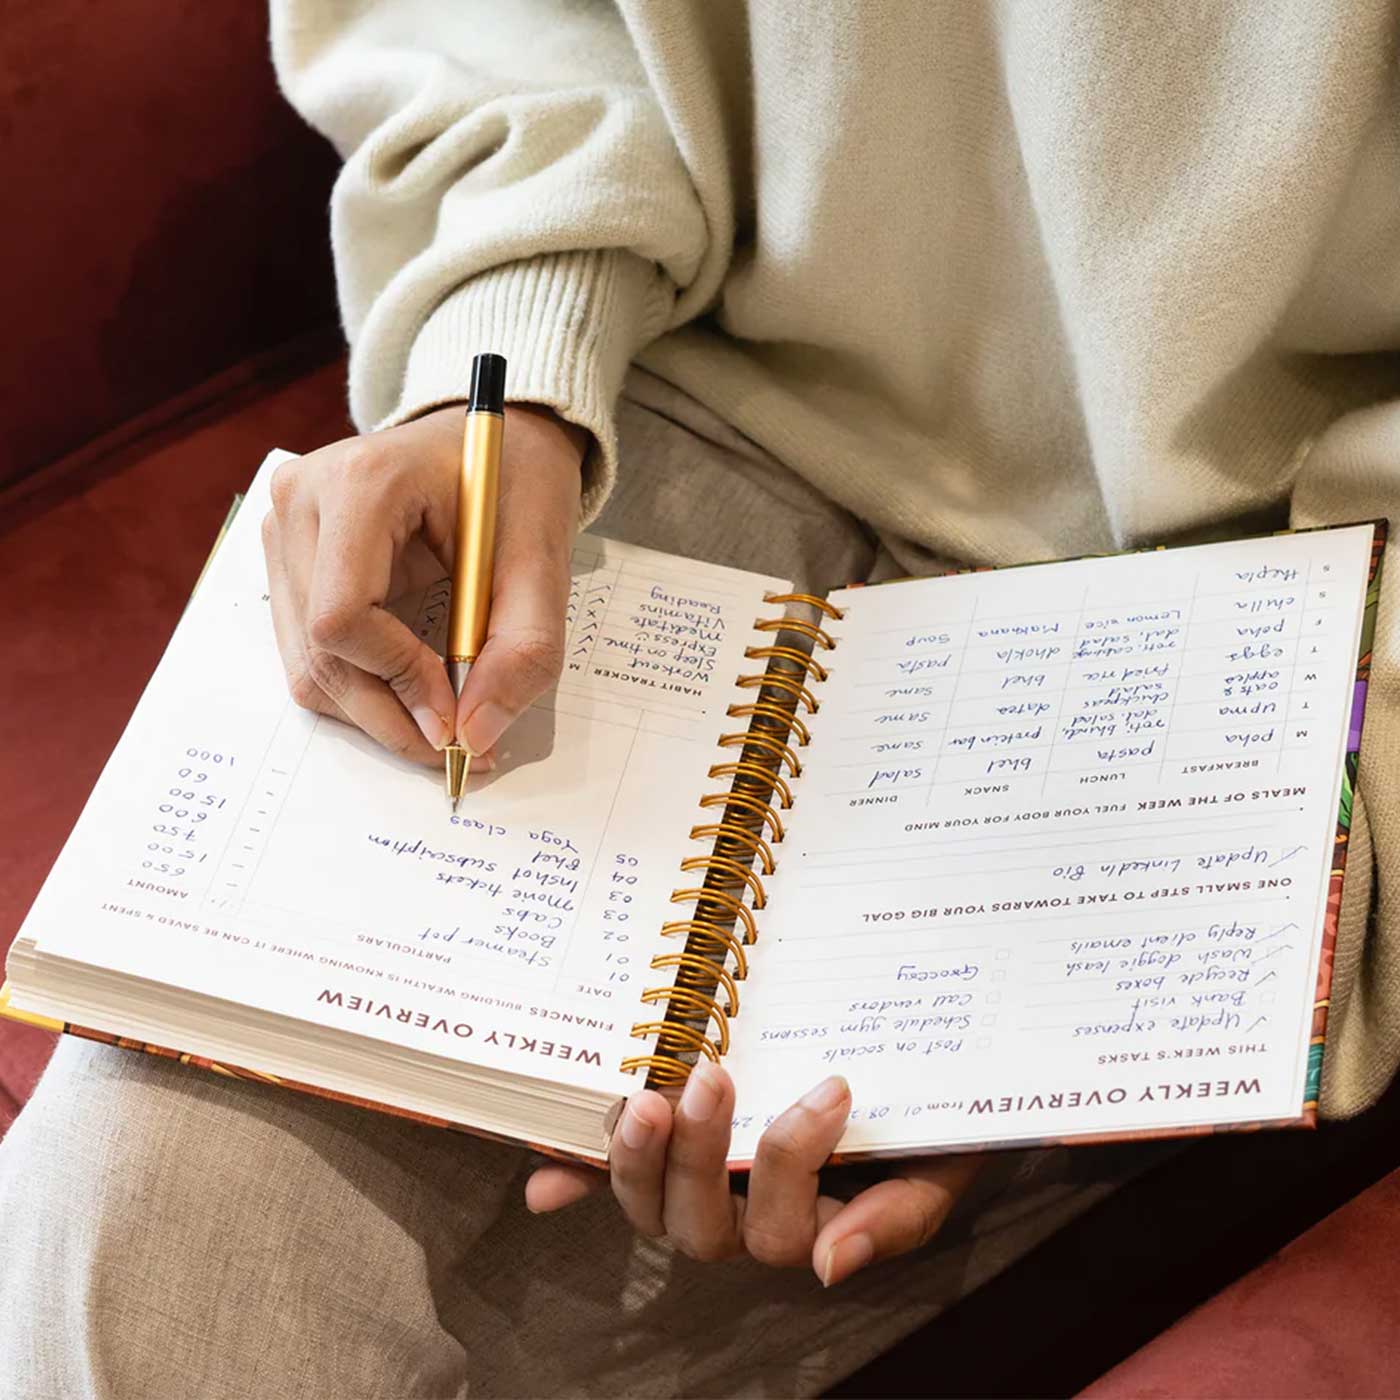 WEEKLY OVERVIEW from 01 08
THIS WEEK'S TASKS
Update expenses
Bank visit
Recycle boxes
Wash doggie leash
Reply client emails
Post on socials
Schedule gym sessions
Call vendors
Grocery
ONE SMALL STEP TO TAKE TOWARDS YOUR BIG GOAL
Update LinkedIn Bio
MEALS OF THE WEEK FUEL YOUR BODY FOR YOUR MIND
BREAKFAST LUNCH SNACK DINNER
M poha pasta bhel salad
T upma roti, bhindi, dal, salad protein bar same
W oats & apples chickpeas salad dates same
T eggs fried rice bhel same
F poha roti, cabbage dal, salad dhokla pasta
S chilla Lemon rice Makhana Soup
S thepla
WEEKLY OVERVIEW
FINANCES BUILDING WEALTH IS KNOWING WHERE IT CAN BE SAVED & SPENT
DATE PARTICULARS AMOUNT
01 Steamer pot 650
01 Books 1500
02 Cabs 750
03 Movie tickets 600
03 Inshot subscription 1500
04 Bhel 60
05 Yoga class 1000
HABIT TRACKER M
Workout
Sleep on time
Express
Meditate
Vitamins
Reading